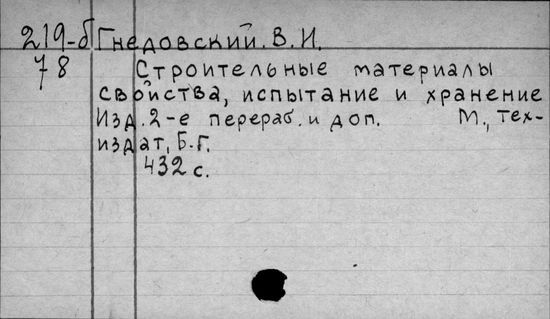 219-б Гнедовский. В. И.
78 Строительные материалы
свойства, испытание и хранение
Изд. 2-е перераб. и доп. М., Тех-
издат, Б. Г.
432 с.